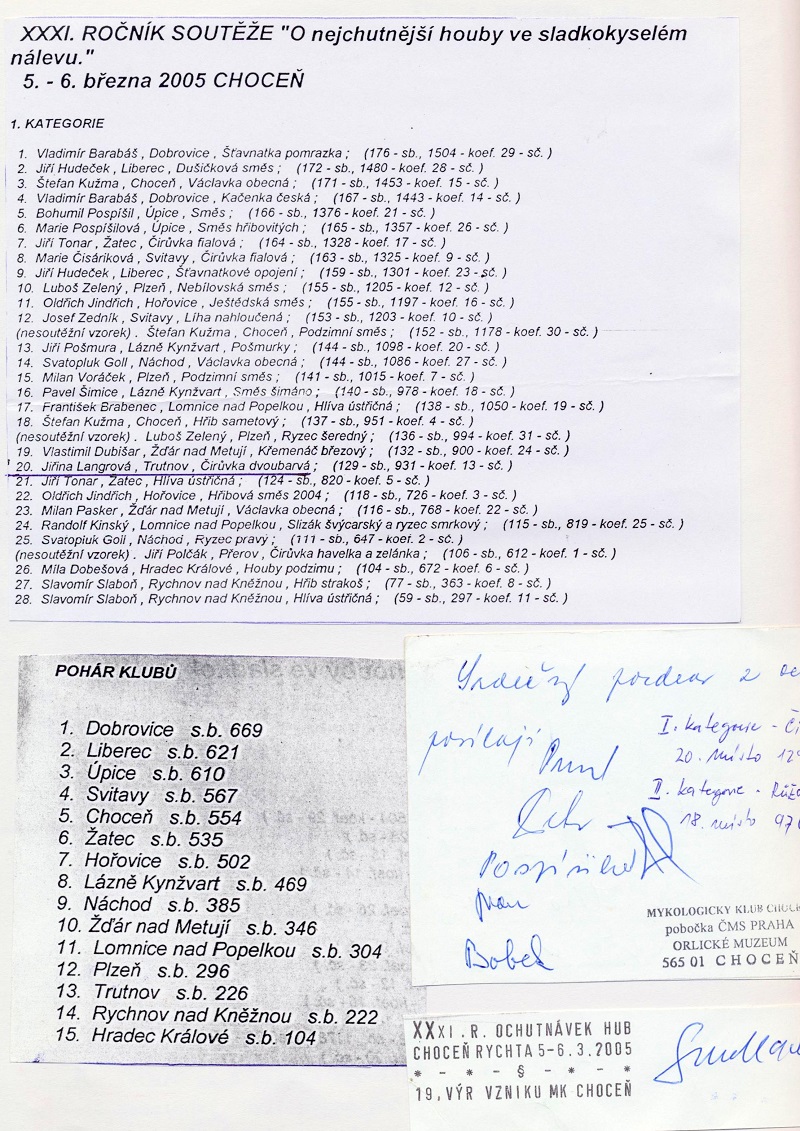 XXXI. ROČNÍK SOUTĚŽE "O nejchutnější houby ve sladkokyselém
nálevu."
5. - 6. března 2005 CHOCEŇ
1. KATEGORIE
1. Vladimír Barabáš , Dobrovice , Šťavnatka pomrazka ; (176 - sb., 1504 - koef. 29 - sč. )
2. Jiří Hudeček , Liberec , Dušičková směs ; (172 - sb., 1480 - koef. 28 - sč. )
3. Štefan Kužma , Choceň , Václavka obecná ; (171 - sb., 1453 - koef. 15 - sč. )
4. Vladimír Barabáš , Dobrovice , Kačenka česká ; (167 - sb., 1443 - koef. 14 - sč. )
5. Bohumil Pospíšil , Úpice , Směs ; (166 - sb., 1376 - koef. 21 - sč. )
6. Marie Pospíšilová , Úpice , Směs hřibovitých ; (165 - sb., 1357 - koef. 26 - sč. )
7. Jiří Tonar , Žatec , Čirůvka fialová ; (164 - sb., 1328 - koef. 17 - sč. )
8. Marie Čisáriková , Svitavy , Čirůvka fialová ; (163 - sb., 1325 - koef. 9 - sč. )
9. Jiří Hudeček , Liberec , Šťavnatkové opojení ; (159 - sb., 1301 - koef. 23 - sč. )
10. Luboš Zelený , Plzeň , Nebílovská směs ; (155 - sb., 1205 - koef. 12 - sč. )
11. Oldřich Jindřich , Hořovice , Ještědská směs ; (155 - sb., 1197 - koef. 16 - sč. )
12. Josef Zedník , Svitavy , Líha nahloučená ; (153 - sb., 1203 - koef. 10 - sč. )
(nesoutěžní vzorek) . Štefan Kužma , Choceň , Podzimní směs ; (152 - sb., 1178 - koef. 30 - sč. )
13. Jiří Pošmura , Lázně Kynžvart , Pošmurky ; (144 - sb., 1098 - koef. 20 - sč. )
14. Svatopluk Goll , Náchod , Václavka obecná ; (144 - sb., 1086 - koef. 27 - sč. )
15. Milan Voráček , Plzeň , Podzimní směs ; (141 - sb., 1015 - koef. 7 - sč. )
16. Pavel Šimice , Lázně Kynžvart , Směs šimáno ; (140 - sb., 978 - koef. 18 - sč. )
17. František Brabenec , Lomnice nad Popelkou , Hlíva ústřičná ; (138 - sb., 1050 - koef. 19 - sč. )
18. Štefan Kužma , Choceň , Hřib sametový ; (137 - sb., 951 - koef. 4 - sč. )
(nesoutěžní vzorek) . Luboš Zelený , Plzeň , Ryzec šeredný ; (136 - sb., 994 - koef. 31 - sč. )
19. Vlastimil Dubišar , Žďár nad Metují , Křemenáč březový ; (132 - sb., 900 - koef. 24 - sč. )
20. Jiřina Langrová , Trutnov , Čirůvka dvoubarvá ; (129 - sb., 931 - koef. 13 - sč. )
21. Jiří Tonar , Žatec , Hlíva ústřičná ; (124 - sb., 820 - koef. 5 - sč. )
22. Oldřich Jindřich , Hořovice , Hřibová směs 2004 ; (118 - sb., 726 - koef. 3 - sč. )
23. Milan Pasker , Žďár nad Metují , Václavka obecná ; (116 - sb., 768 - koef. 22 - sč. )
24. Randolf Kinský , Lomnice nad Popelkou , Slizák švýcarský a ryzec smrkový ; (115 - sb., 819 - koef. 25 - sč. )
25. Svatopluk Goll , Náchod , Ryzec pravý ; (111 - sb., 647 - koef. 2 - sč. )
(nesoutěžní vzorek) . Jiří Polčák , Přerov , Čirůvka havelka a zelánka ; (106 - sb., 612 - koef. 1 - sč. )
26. Míla Dobešová , Hradec Králové , Houby podzimu ; (104 - sb., 672 - koef. 6 - sč. )
27. Slavomír Slaboň , Rychnov nad Kněžnou , Hřib strakoš ; (77 - sb., 363 - koef. 8 - sč. )
28. Slavomír Slaboň , Rychnov nad Kněžnou , Hlíva ústřičná ; (59 - sb., 297 - koef. 11 - sč. )
POHÁR KLUBŮ
1. Dobrovice s.b. 669
2. Liberec s.b. 621
3. Úpice s.b. 610
4. Svitavy s.b. 567
5. Choceň s.b. 554
6. Žatec s.b. 535
7. Hořovice s.b. 502
8. Lázně Kynžvart s.b. 469
9. Náchod s.b. 385
10. Žďár nad Metují s.b. 346
11. Lomnice nad Popelkou s.b. 304
12. Plzeň s.b. 296
13. Trutnov s.b. 226
14. Rychnov nad Kněžnou s.b. 222
15. Hradec Králové s.b. 104
Srdečný pozdrav z
posílají
I. kategorie - Či
20. místo 129
II. kategorie - Růžo
18. místo 970
Bobek
MYKOLOGICKÝ KLUB CHOCE
pobočka ČMS PRAHA
ORLICKÉ MUZEUM
565 01 CHOCEŇ
XXXI .R. OCHUTNÁVEK HUB
CHOCEŇ RYCHTA 5-6.3.2005
* - * - § - * - *
19, VÝR VZNIKU MK CHOCEŇ